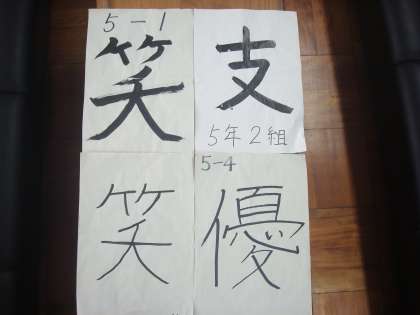 5-1
笑
支
5年2組
笑
5-4
優